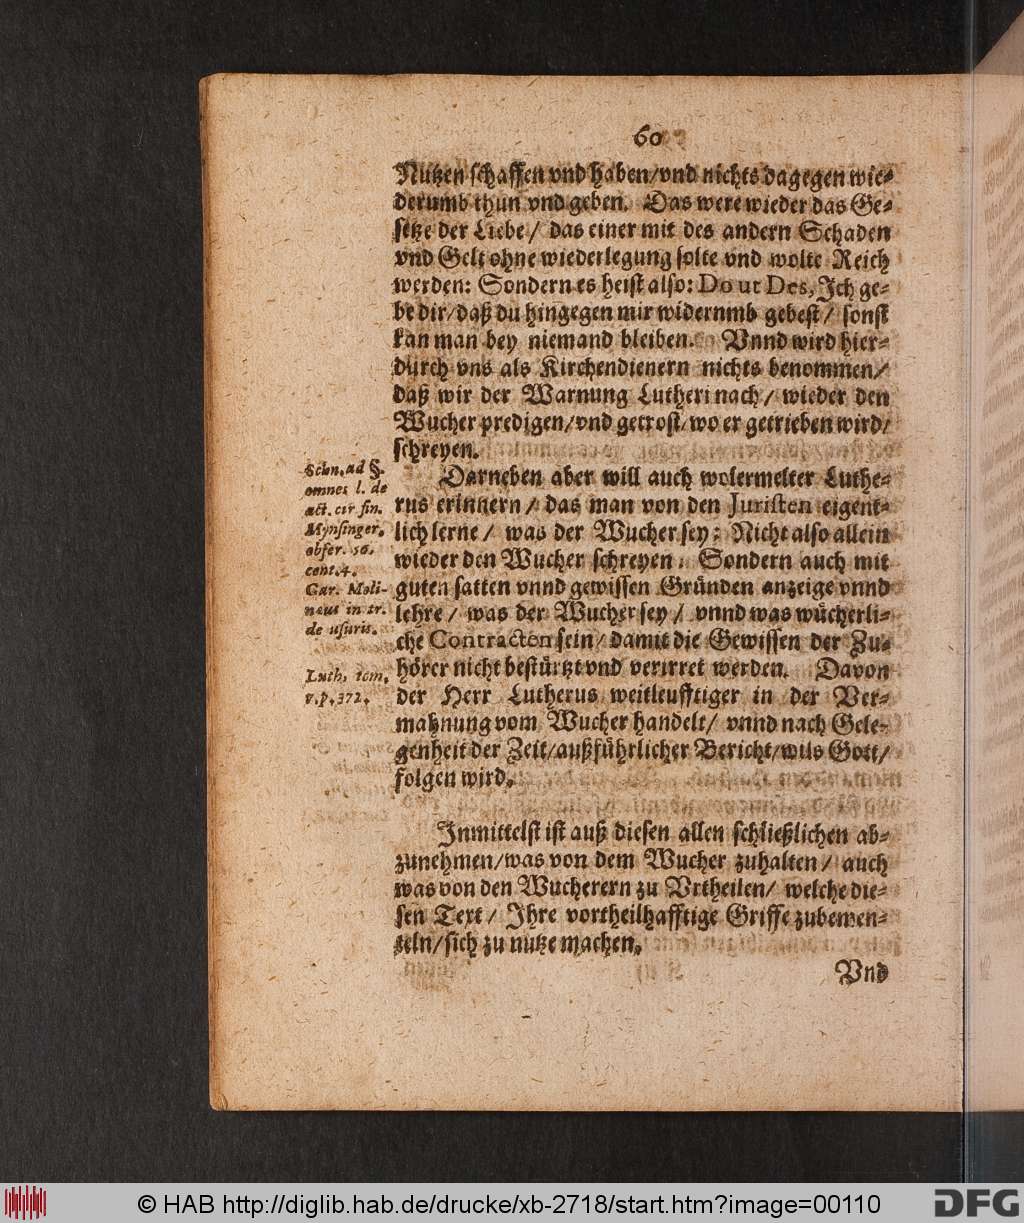 60
Nutzen schaffen vnd haben/vnd nichts dagegen wie-
derumb thun vnd geben. Das were wieder das Ge-
setze der Liebe/ das einer mit des andern Schaden
vnd Gelt ohne wiederlegung solte vnd wolte Reich
werden: Sondern es heist also: Do ut Des, Ich ge-
be dir/daß du hingegen mir widernmb gebest/ sonst
kan man bey niemand bleiben. Vnnd wird hier-
durch vns als Kirchendienern nichts benommen/
daß wir der Warnung Lutheri nach/ wieder den
Wucher predigen/vnd getrost/wo er getrieben wird/
schreyen.
Darneben aber will auch wolermelter Luthe-
rus erinnern/ das man von den Juristen eigent-
lich lerne/ was der Wucher sey: Nicht also allein
wieder den Wucher schreyen: Sondern auch mit
guten satten vnnd gewissen Gründen anzeige vnnd
lehre/ was der Wucher sey/ vnnd was wücherli-
che Contracten sein/ damit die Gewissen der Zu-
hörer nicht bestürtzt vnd verirret werden. Davon
der Herr Lutherus weitleufftiger in der Ver-
mahnung vom Wucher handelt/ vnnd nach Gele-
genheit der Zeit/außführlicher Bericht/wils Gott/
folgen wird.
Schn. ad §.
omnes l. de
act. cir. fin.
Mynsinger.
obser. 56.
cent. 4.
Gar. Moli-
neus in tr.
de usuris.
Luth. tom.
v. p. 372.
Inmittelst ist auß diesen allen schließlichen ab-
zunehmen/was von dem Wucher zuhalten/ auch
was von den Wucherern zu Vrtheilen/ welche die-
sen Text/ Ihre vortheilhafftige Griffe zubemen-
teln/sich zu nutze machen.
Vnd
© HAB http://diglib.hab.de/drucke/xb-2718/start.htm?image=00110
DFG